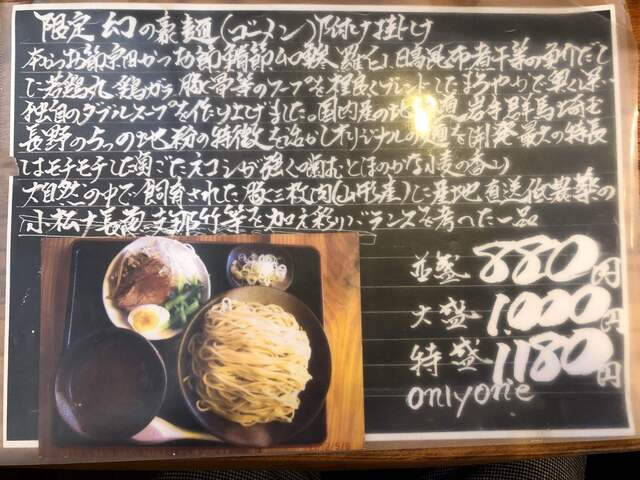 限定 幻の豪麺(ゴーメン)付け掛け
本かつお節宗田かつお節鯖節ムロ鯵、羅臼、日高昆布煮干等の魚りだし
に若鶏丸、鶏ガラ 豚骨等のスープを程良くブレンドしたまろやかで奥く深い
独自のダブルスープを作り上げました。国内産の地粉 岩手群馬埼玉
長野の5つの地粉の特徴を活かしオリジナルの麺を開発 最大の特長
はモチモチした歯ごたえコシが強く噛むとほのかな小麦の香り
大自然の中で飼育された豚三枚肉(山形産)に産地直送低農薬の
小松菜長葱支那竹等を加え彩りバランスを考へた一品
並盛 880円
大盛 1,000円
特盛 1180円
onlyone